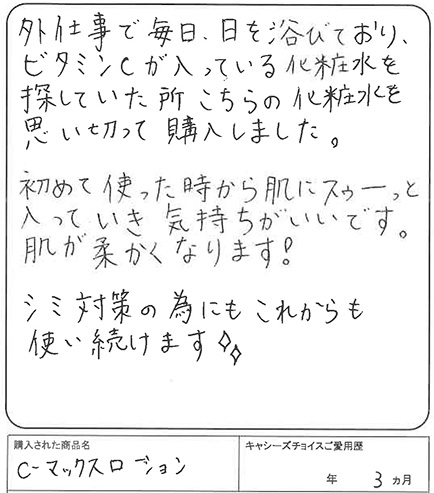 外仕事で毎日、日を浴びており、
ビタミンCが入っている化粧水を
探していた所こちらの化粧水を
思い切って購入しました。
初めて使った時から肌にスゥーっと
入っていき気持ちがいいです。
肌が柔かくなります!
シミ対策の為にもこれからも
使い続けます
購入された商品名
キャシーズチョイスご愛用歴
C-マックスローション
年 3ヵ月